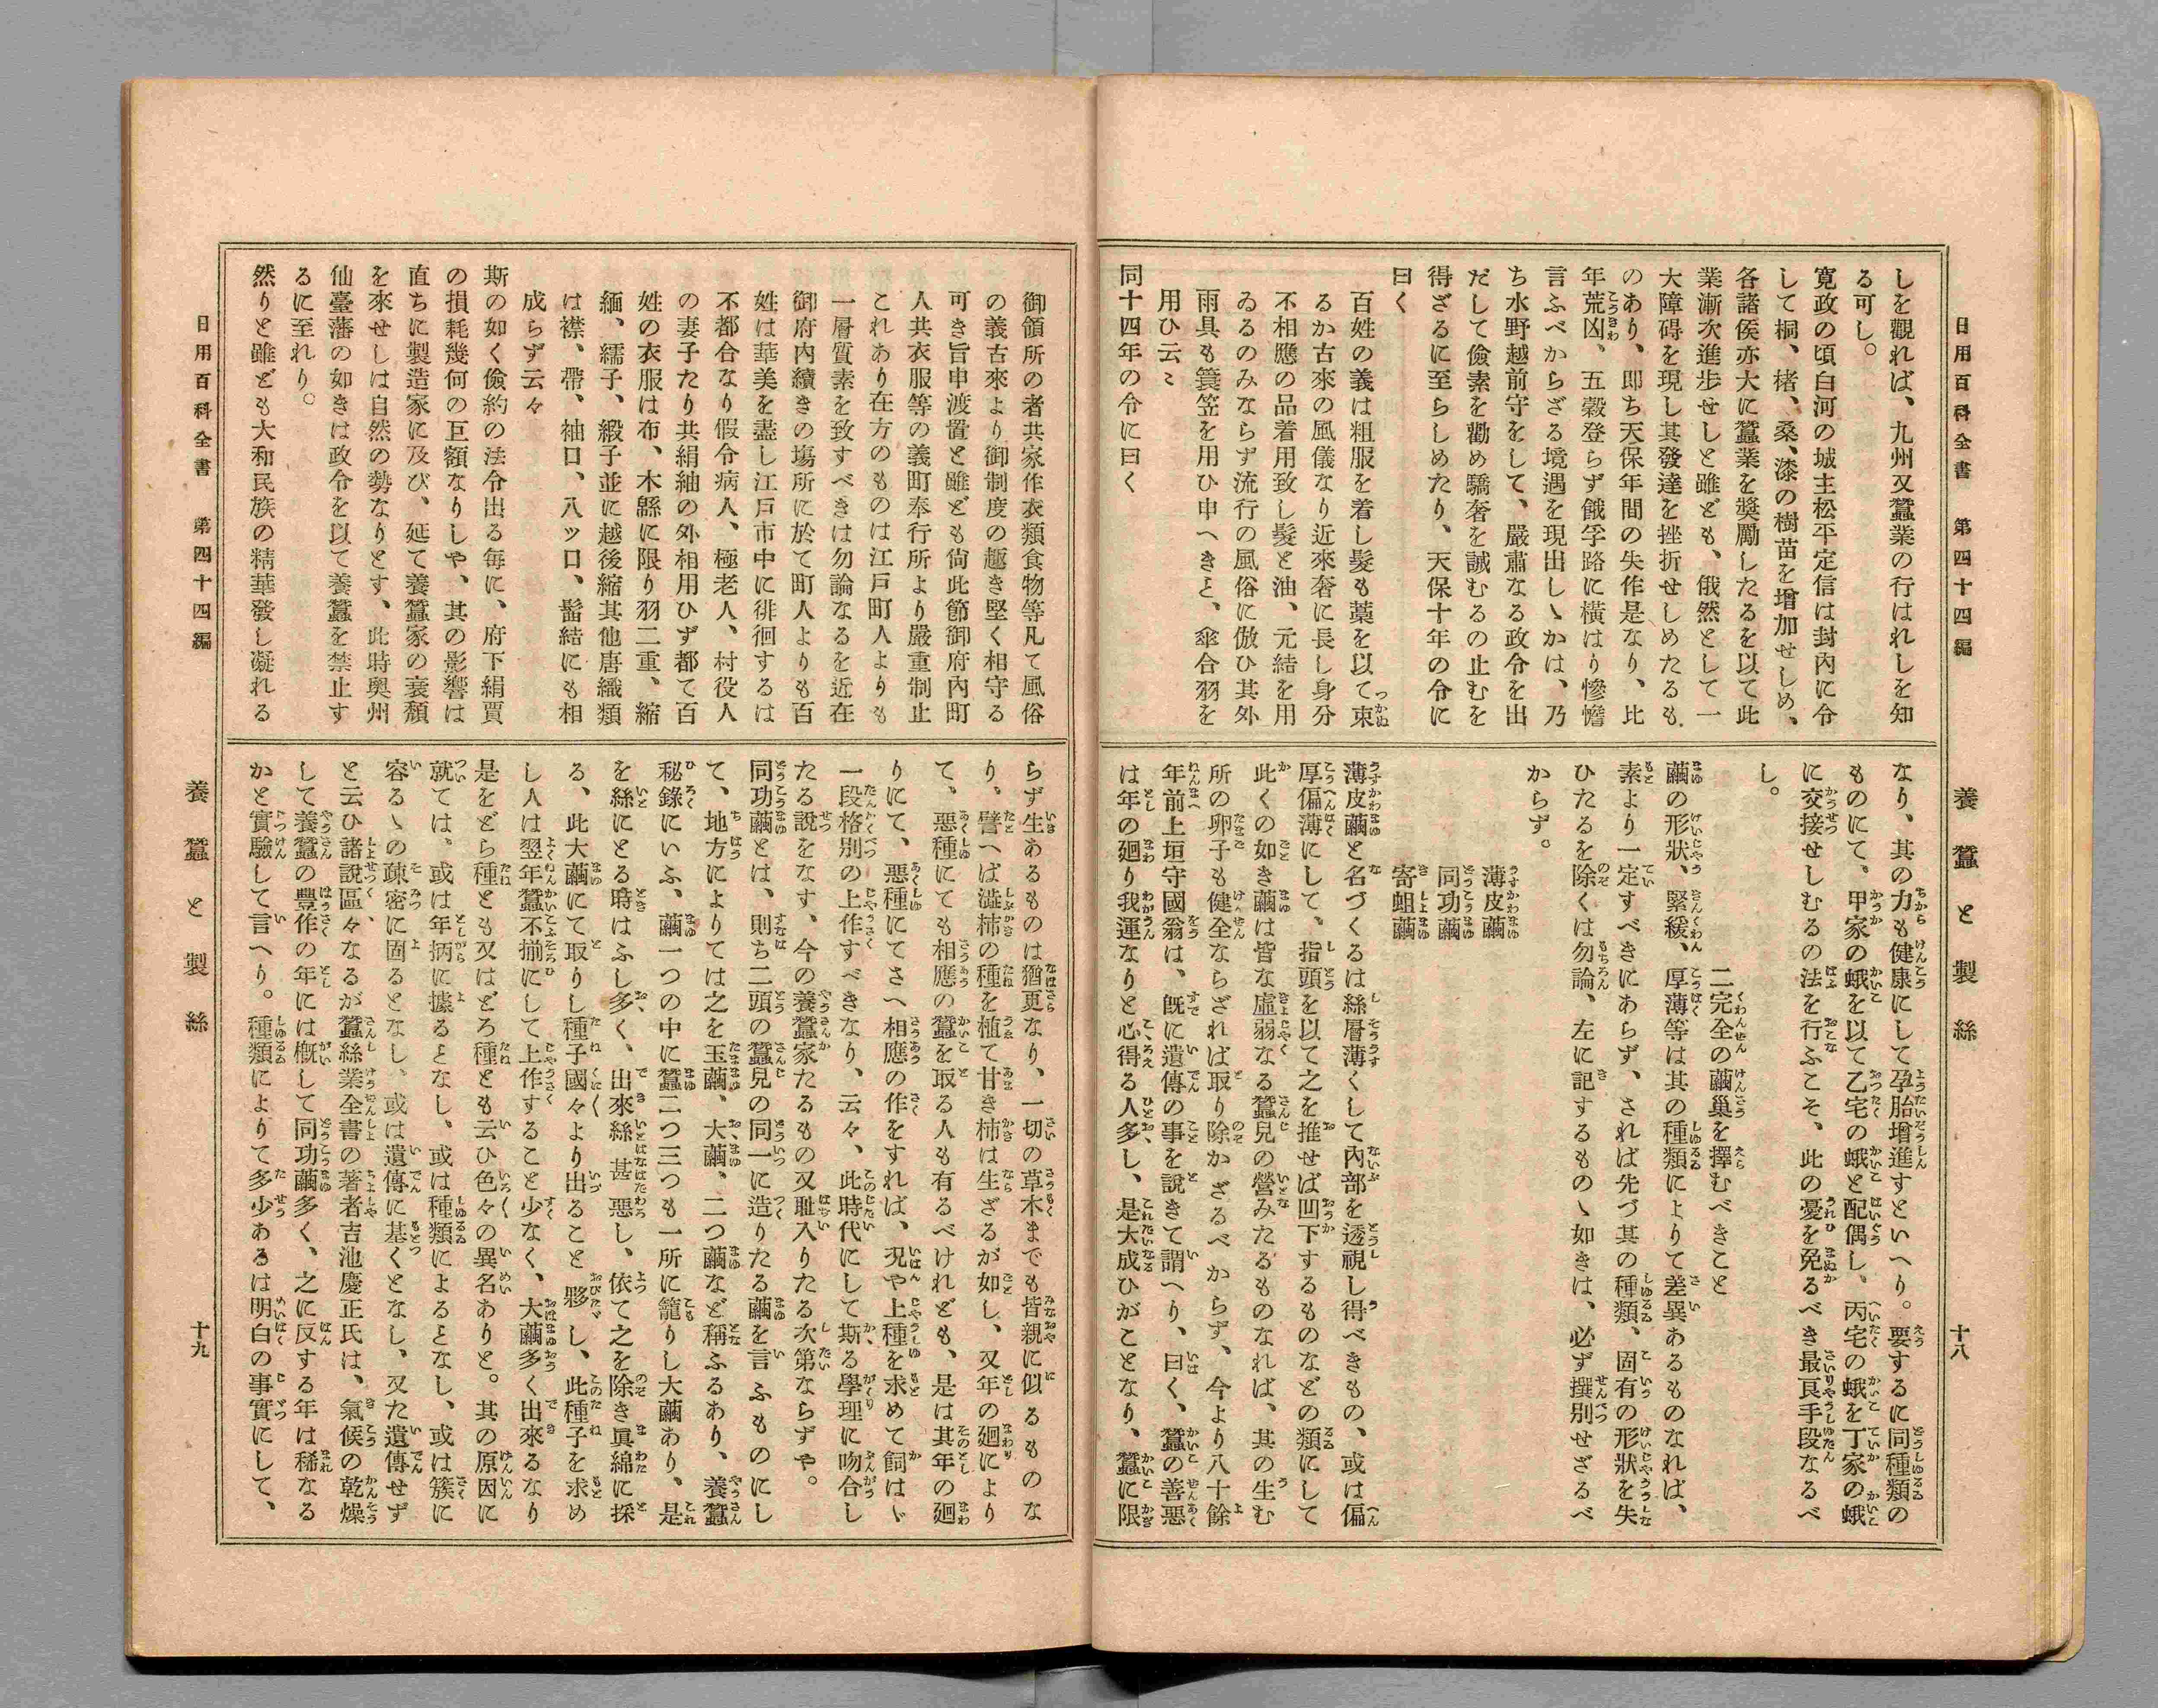 日用百科全書　第四十四編
養蠶と製絲
十八
しを觀れば、九州又蠶業の行はれしを知
る可し。
寛政の頃白河の城主松平定信は封內に令
して桐、楮、桑、漆の樹苗を增加せしめ、
各諸侯亦大に蠶業を奬勵したるを以て此
業漸次進步せしと雖ども、俄然として一
大障碍を現し其發達を挫折せしめたるも
のあり、即ち天保年間の失作是なり、比
年荒凶、五穀登らず餓孚路に橫はり慘憺
言ふべからざる境遇を現出しゝかは、乃
ち水野越前守をして、嚴肅なる政令を出
だして儉素を勸め驕奢を誡むるの止むを
得ざるに至らしめたり、天保十年の令に
曰く
百姓の義は粗服を着し髮も藁を以て束
るか古來の風儀なり近來奢に長し身分
不相應の品着用致し髮と油、元結を用
ゐるのみならず流行の風俗に倣ひ其外
雨具も簑笠を用ひ申へきと、傘合羽を
用ひ云々
同十四年の令に曰く
なり、其の力も健康にして孕胎增進すといへり。要するに同種類の
ものにて、甲家の蛾を以て乙宅の蛾と配偶し、丙宅の蛾を丁家の蛾
に交接せしむるの法を行ふこそ、此の憂を免るべき最良手段なるべ
し。
二完全の繭巢を擇むべきこと
繭の形狀、緊緩、厚薄等は其の種類によりて差異あるものなれば、
素より一定すべきにあらず、されば先づ其の種類、固有の形狀を失
ひたるを除くは勿論、左に記するものゝ如きは、必ず撰別せざるべ
からず。
薄皮繭
同功繭
寄蛆繭
薄皮繭と名づくるは絲層薄くして內部を透視し得べきもの、或は偏
厚偏薄にして、指頭を以て之を推せば凹下するものなどの類にして
此くの如き繭は皆な虛弱なる蠶兒の營みたるものなれば、其の生む
所の卵子も健全ならざれば取り除かざるべからず、今より八十餘
年前上垣守國翁は、既に遺傳の事を說きて謂へり、曰く、蠶の善惡
は年の廻り我運なりと心得る人多し、是大成ひがことなり、蠶に限
御領所の者共家作衣類食物等凡て風俗
の義古來より御制度の趣き堅く相守る
可き旨申渡置と雖ども尙此節御府內町
人共衣服等の義町奉行所より嚴重制止
これあり在方のものは江戶町人よりも
一層質素を致すべきは勿論なるを近在
御府內續きの塲所に於て町人よりも百
姓は華美を盡し江戶市中に徘徊するは
不都合なり假令病人、極老人、村役人
の妻子たり共絹紬の外相用ひず都て百
姓の衣服は布、木緜に限り羽二重、縮
緬、繻子、緞子並に越後縮其他唐織類
は襟、帶、袖口、八ッ口、髷結にも相
成らず云々
斯の如く儉約の法令出る每に、府下絹賈
の損耗幾何の巨額なりしや、其の影響は
直ちに製造家に及び、延て養蠶家の衰頽
を來せしは自然の勢なりとす、此時奧州
仙臺藩の如きは政令を以て養蠶を禁止す
るに至れり。
然りと雖ども大和民族の精華發し凝れる
らず生あるものは猶更なり、一切の草木までも皆親に似るものな
り。譬へば澁柿の種を植て甘き柿は生ざるが如し、又年の廻により
て、惡種にても相應の蠶を取る人も有るべけれども、是は其年の廻
りにて、惡種にてさへ相應の作をすれば、況や上種を求めて飼はゞ
一段格別の上作すべきなり、云々、此時代にして斯る學理に吻合し
たる說をなす、今の養蠶家たるもの又耻入りたる次第ならずや。
同功繭とは、則ち二頭の蠶兒の同一に造りたる繭を言ふものにし
て、地方によりては之を玉繭、大繭、二つ繭など稱ふるあり、養蠶
秘錄にいふ、繭一つの中に蠶二つ三つも一所に籠りし大繭あり、是
を絲にとる時はふし多く、出來絲甚惡し、依て之を除き眞綿に採
る、此大繭にて取りし種子國々より出ること夥し、此種子を求め
し人は翌年蠶不揃にして上作すること少なく、大繭多く出來るなり
是をどら種とも又はどろ種とも云ひ色々の異名ありと。其の原因に
就ては、或は年柄に據るとなし、或は種類によるとなし、或は簇に
容るゝの疎密に因るとなし、或は遺傳に基くとなし、又た遺傳せず
と云ひ諸說區々なるが蠶絲業全書の著者吉池慶正氏は、氣候の乾燥
して養蠶の豐作の年には槪して同功繭多く、之に反する年は稀なる
かと實驗して言へり。種類によりて多少あるは明白の事實にして、
日用百科全書　第四十四編
養蠶と製絲
十九